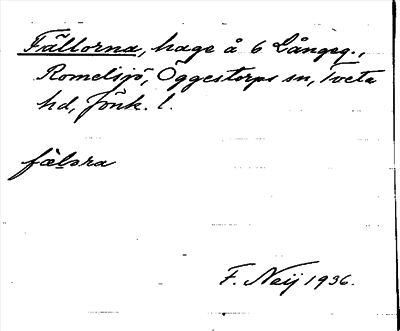 Fällorna, hage å 6 Långeg.,
Romelsjö, Öggestorps sn, Tveta
hd, Jönk. l.
fälora
F. Neij 1936.